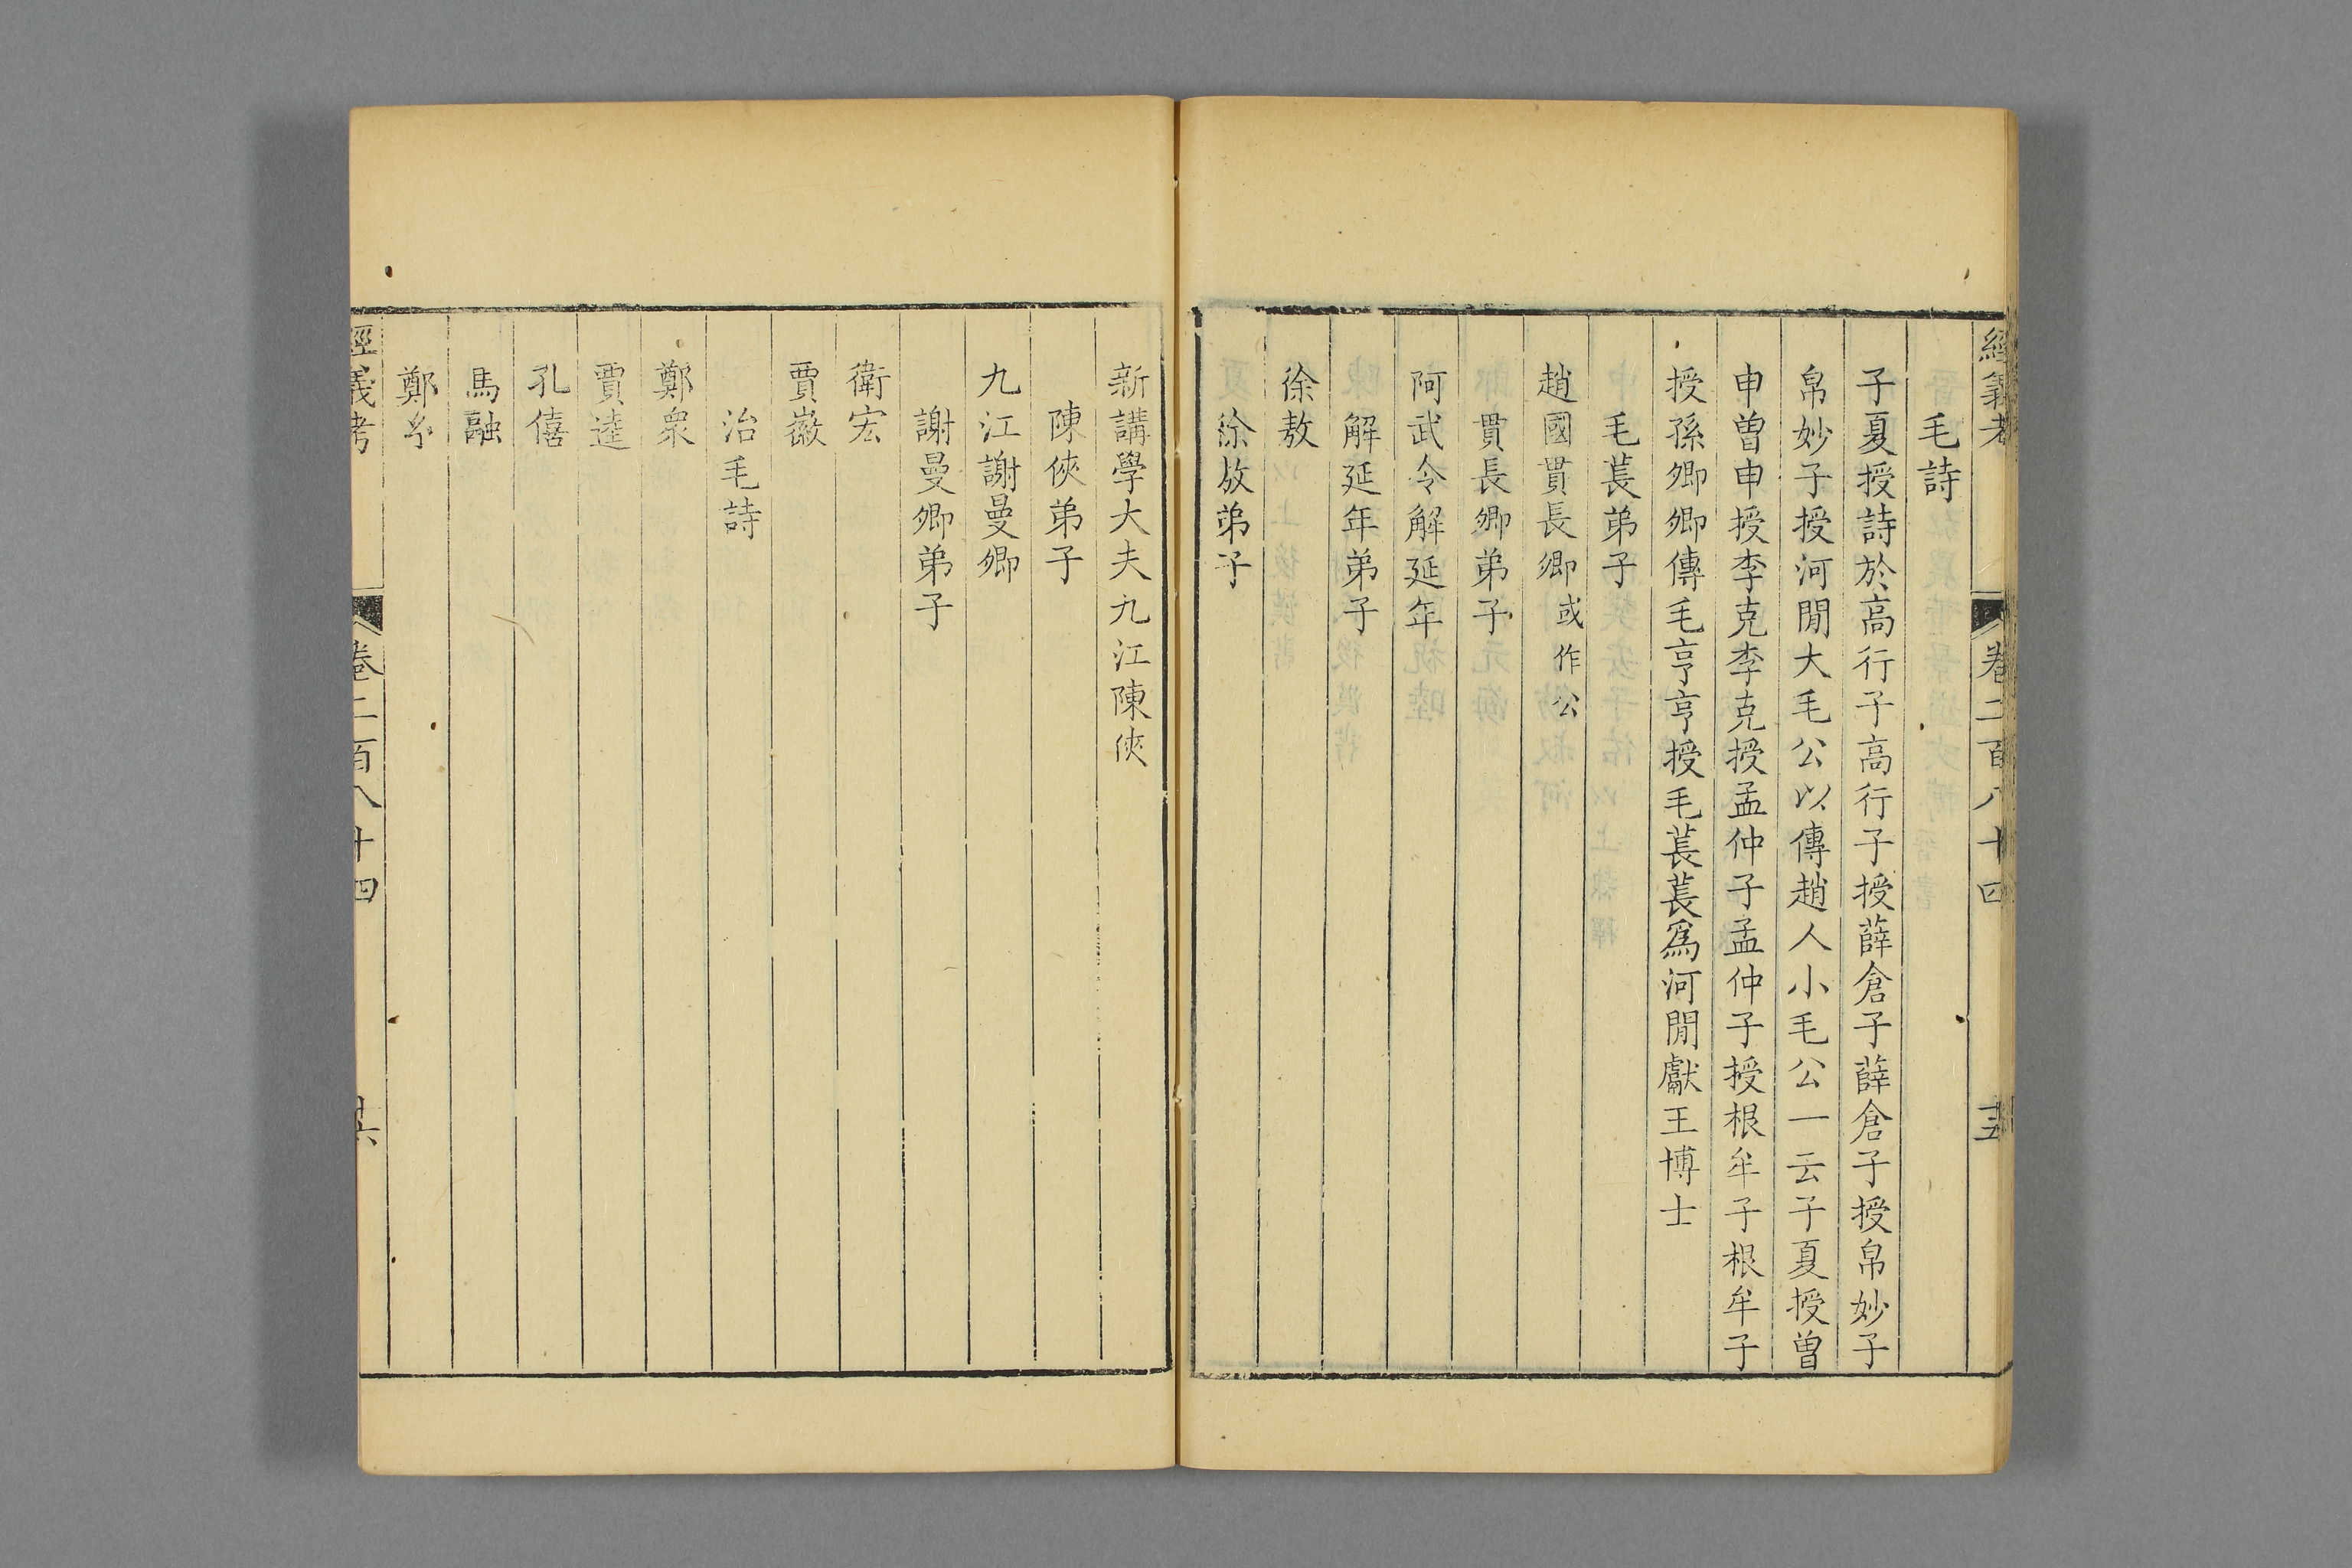 經義考 卷二百八十四
毛詩
子夏授詩於高行子高行子授薛倉子薛倉子授帛妙子
帛妙子授河閒大毛公以傳趙人小毛公一云子夏授曾
申曾申授李克李克授孟仲子孟仲子授根牟子根牟子
授孫卿卿傳毛亨亨授毛萇萇爲河閒獻王博士
毛萇弟子
趙國貫長卿或作公
貫長卿弟子
阿武令解延年
解延年弟子
徐敖
徐敖弟子
新講學大夫九江陳俠
陳俠弟子
九江謝曼卿
謝曼卿弟子
衛宏
賈徽
治毛詩
鄭衆
賈逵
孔僖
馬融
鄭
經義考 卷二百八十四